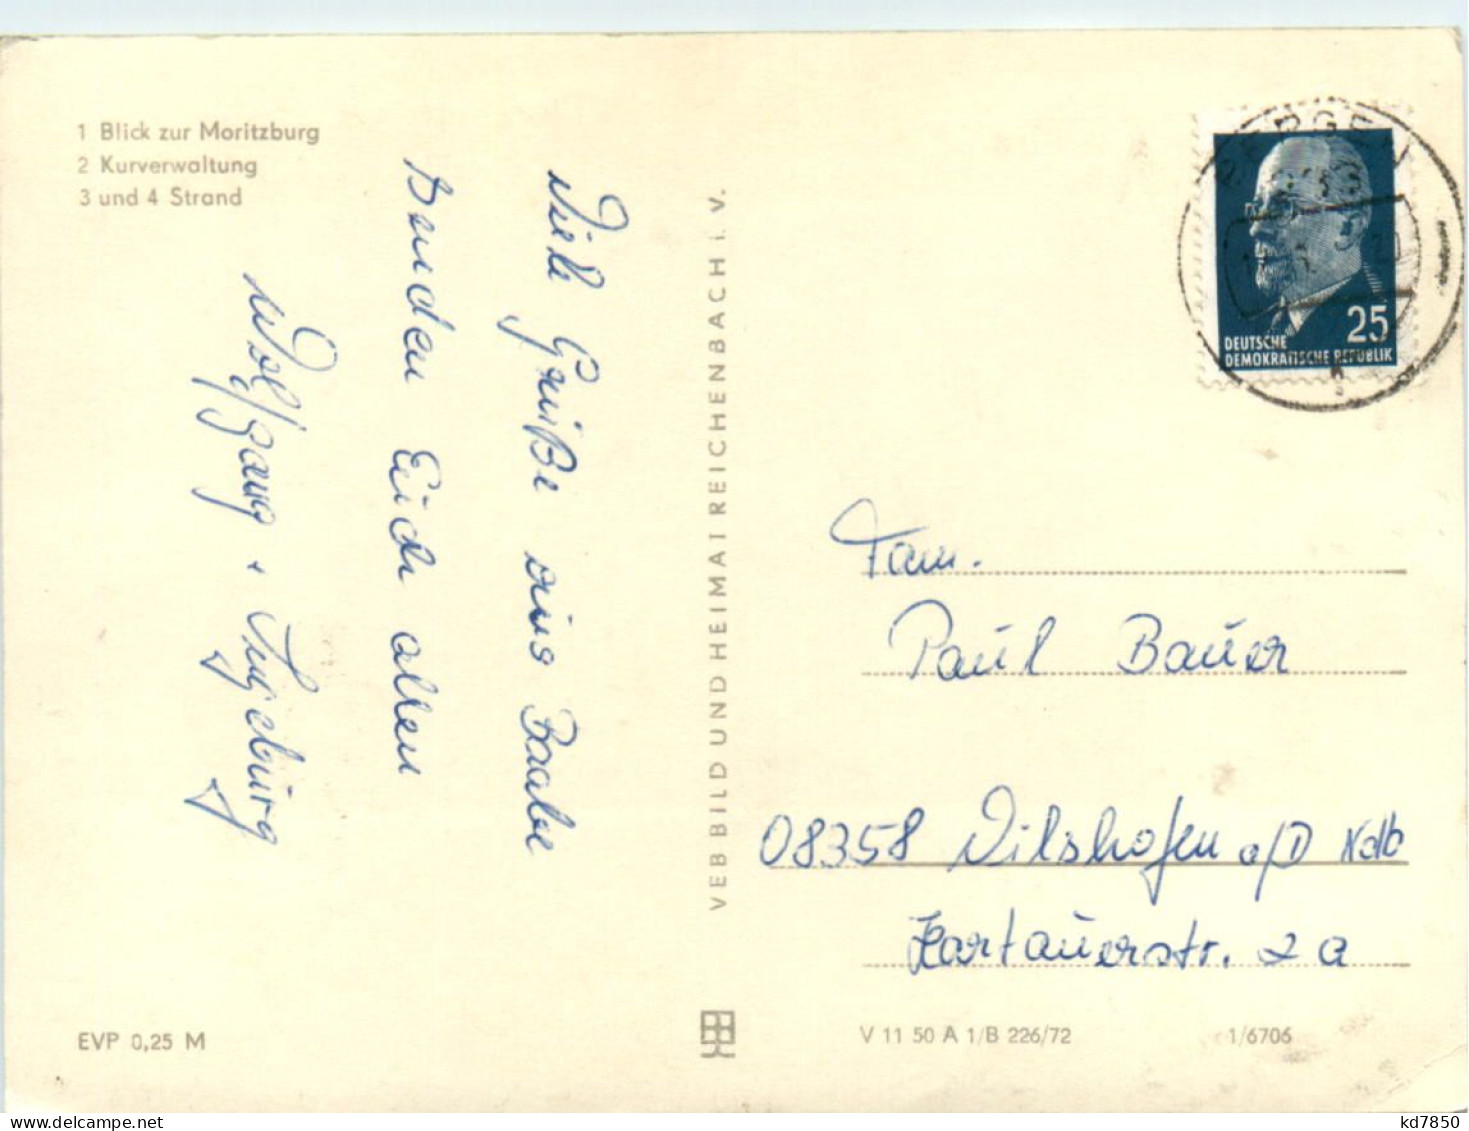 1 Blick zur Moritzburg
2 Kurverwaltung
3 und 4 Strand
Viele Grüße aus Baabe
senden Euch allen
Wolfgang + Ingeburg
VEB BILD UND HEIMAT REICHENBACH I. V.
BERGEN
25
DEUTSCHE
DEMOKRATISCHE REPUBLIK
Fam.
Paul Bauer
08358 Vilshofen a/D Ndb
Hartauerstr. 2a
EVP 0,25 M
V 11 50 A 1/B 226/72
1/6706
kd7850